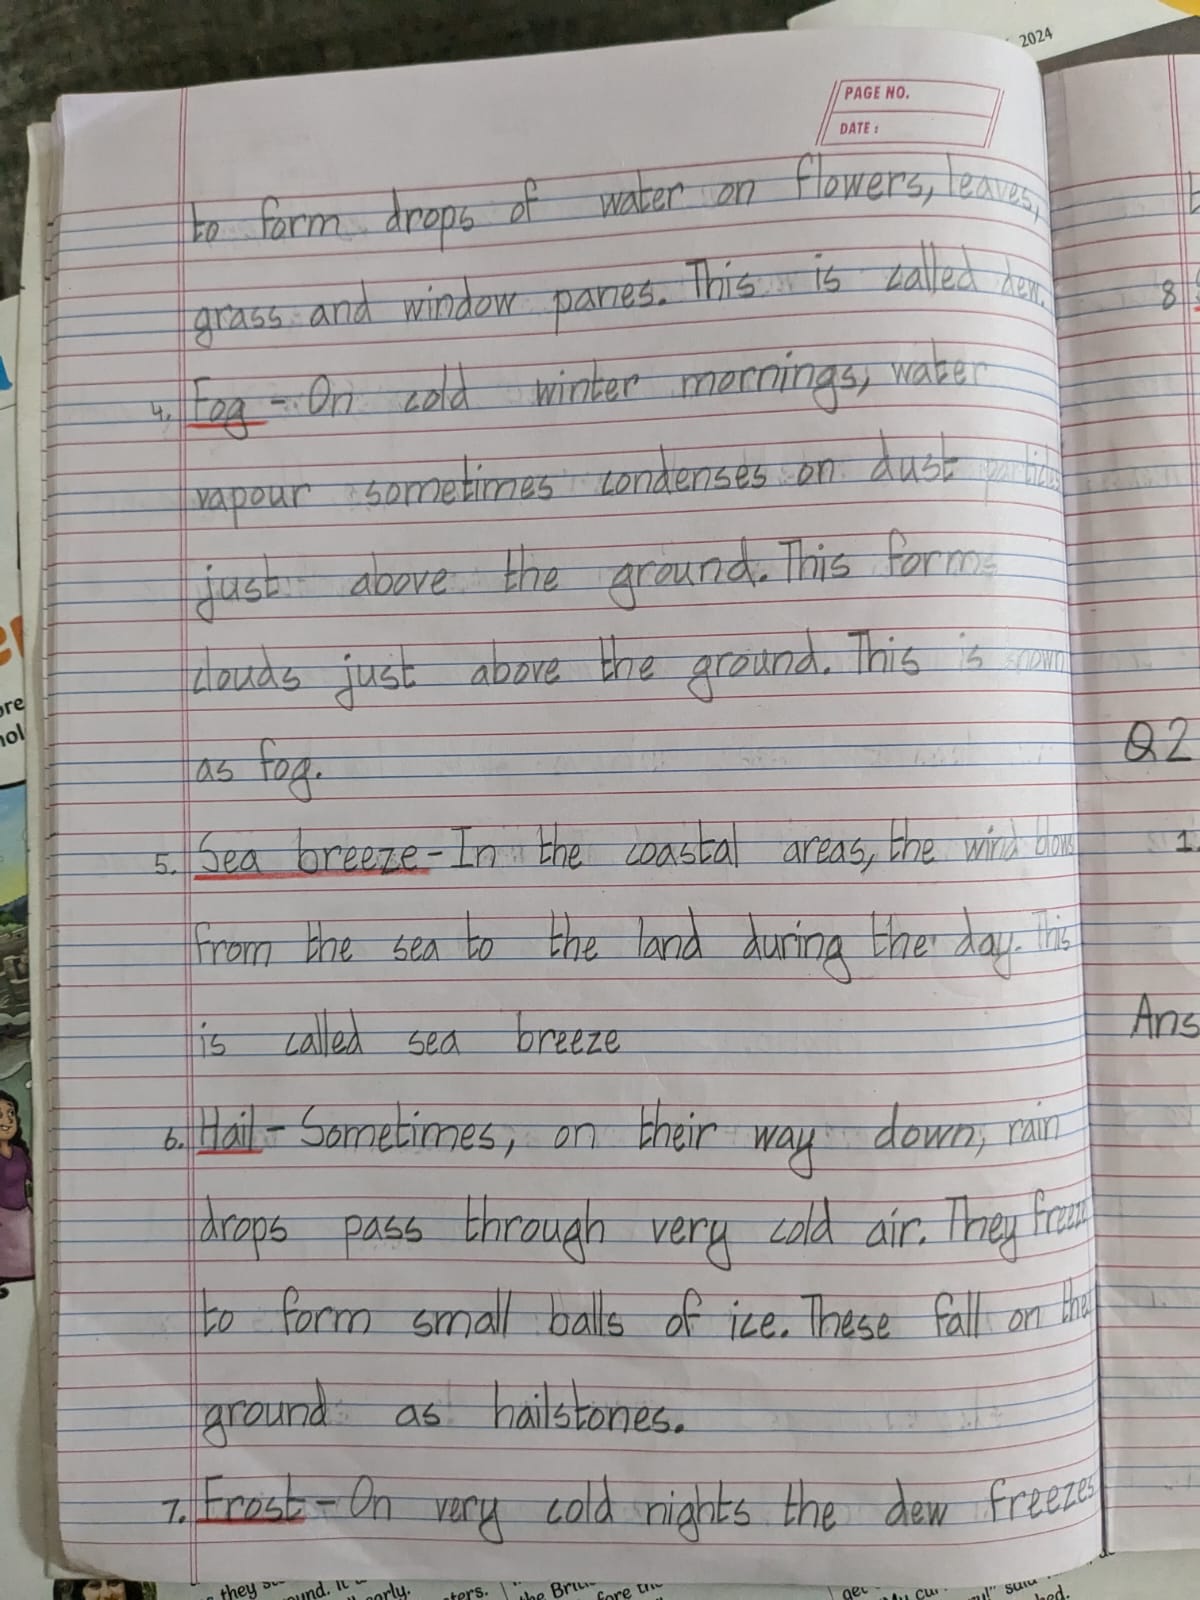 2024
PAGE NO.
DATE :
to form drops of water on flowers, leaves,
grass and window panes. This is called dew.
4. Fog - On cold winter mornings, water
vapour sometimes condenses on dust particles
just above the ground. This forms
clouds just above the ground. This is nown
as fog.
5. Sea breeze - In the coastal areas, the wind blows
from the sea to the land during the day. This
is called sea breeze
6. Hail - Sometimes, on their way down, rain
drops pass through very cold air. They freeze
to form small balls of ice. These fall on the
ground as hailstones.
7. Frost - On very cold nights the dew freezes
8
Q2
1.
Ans
they